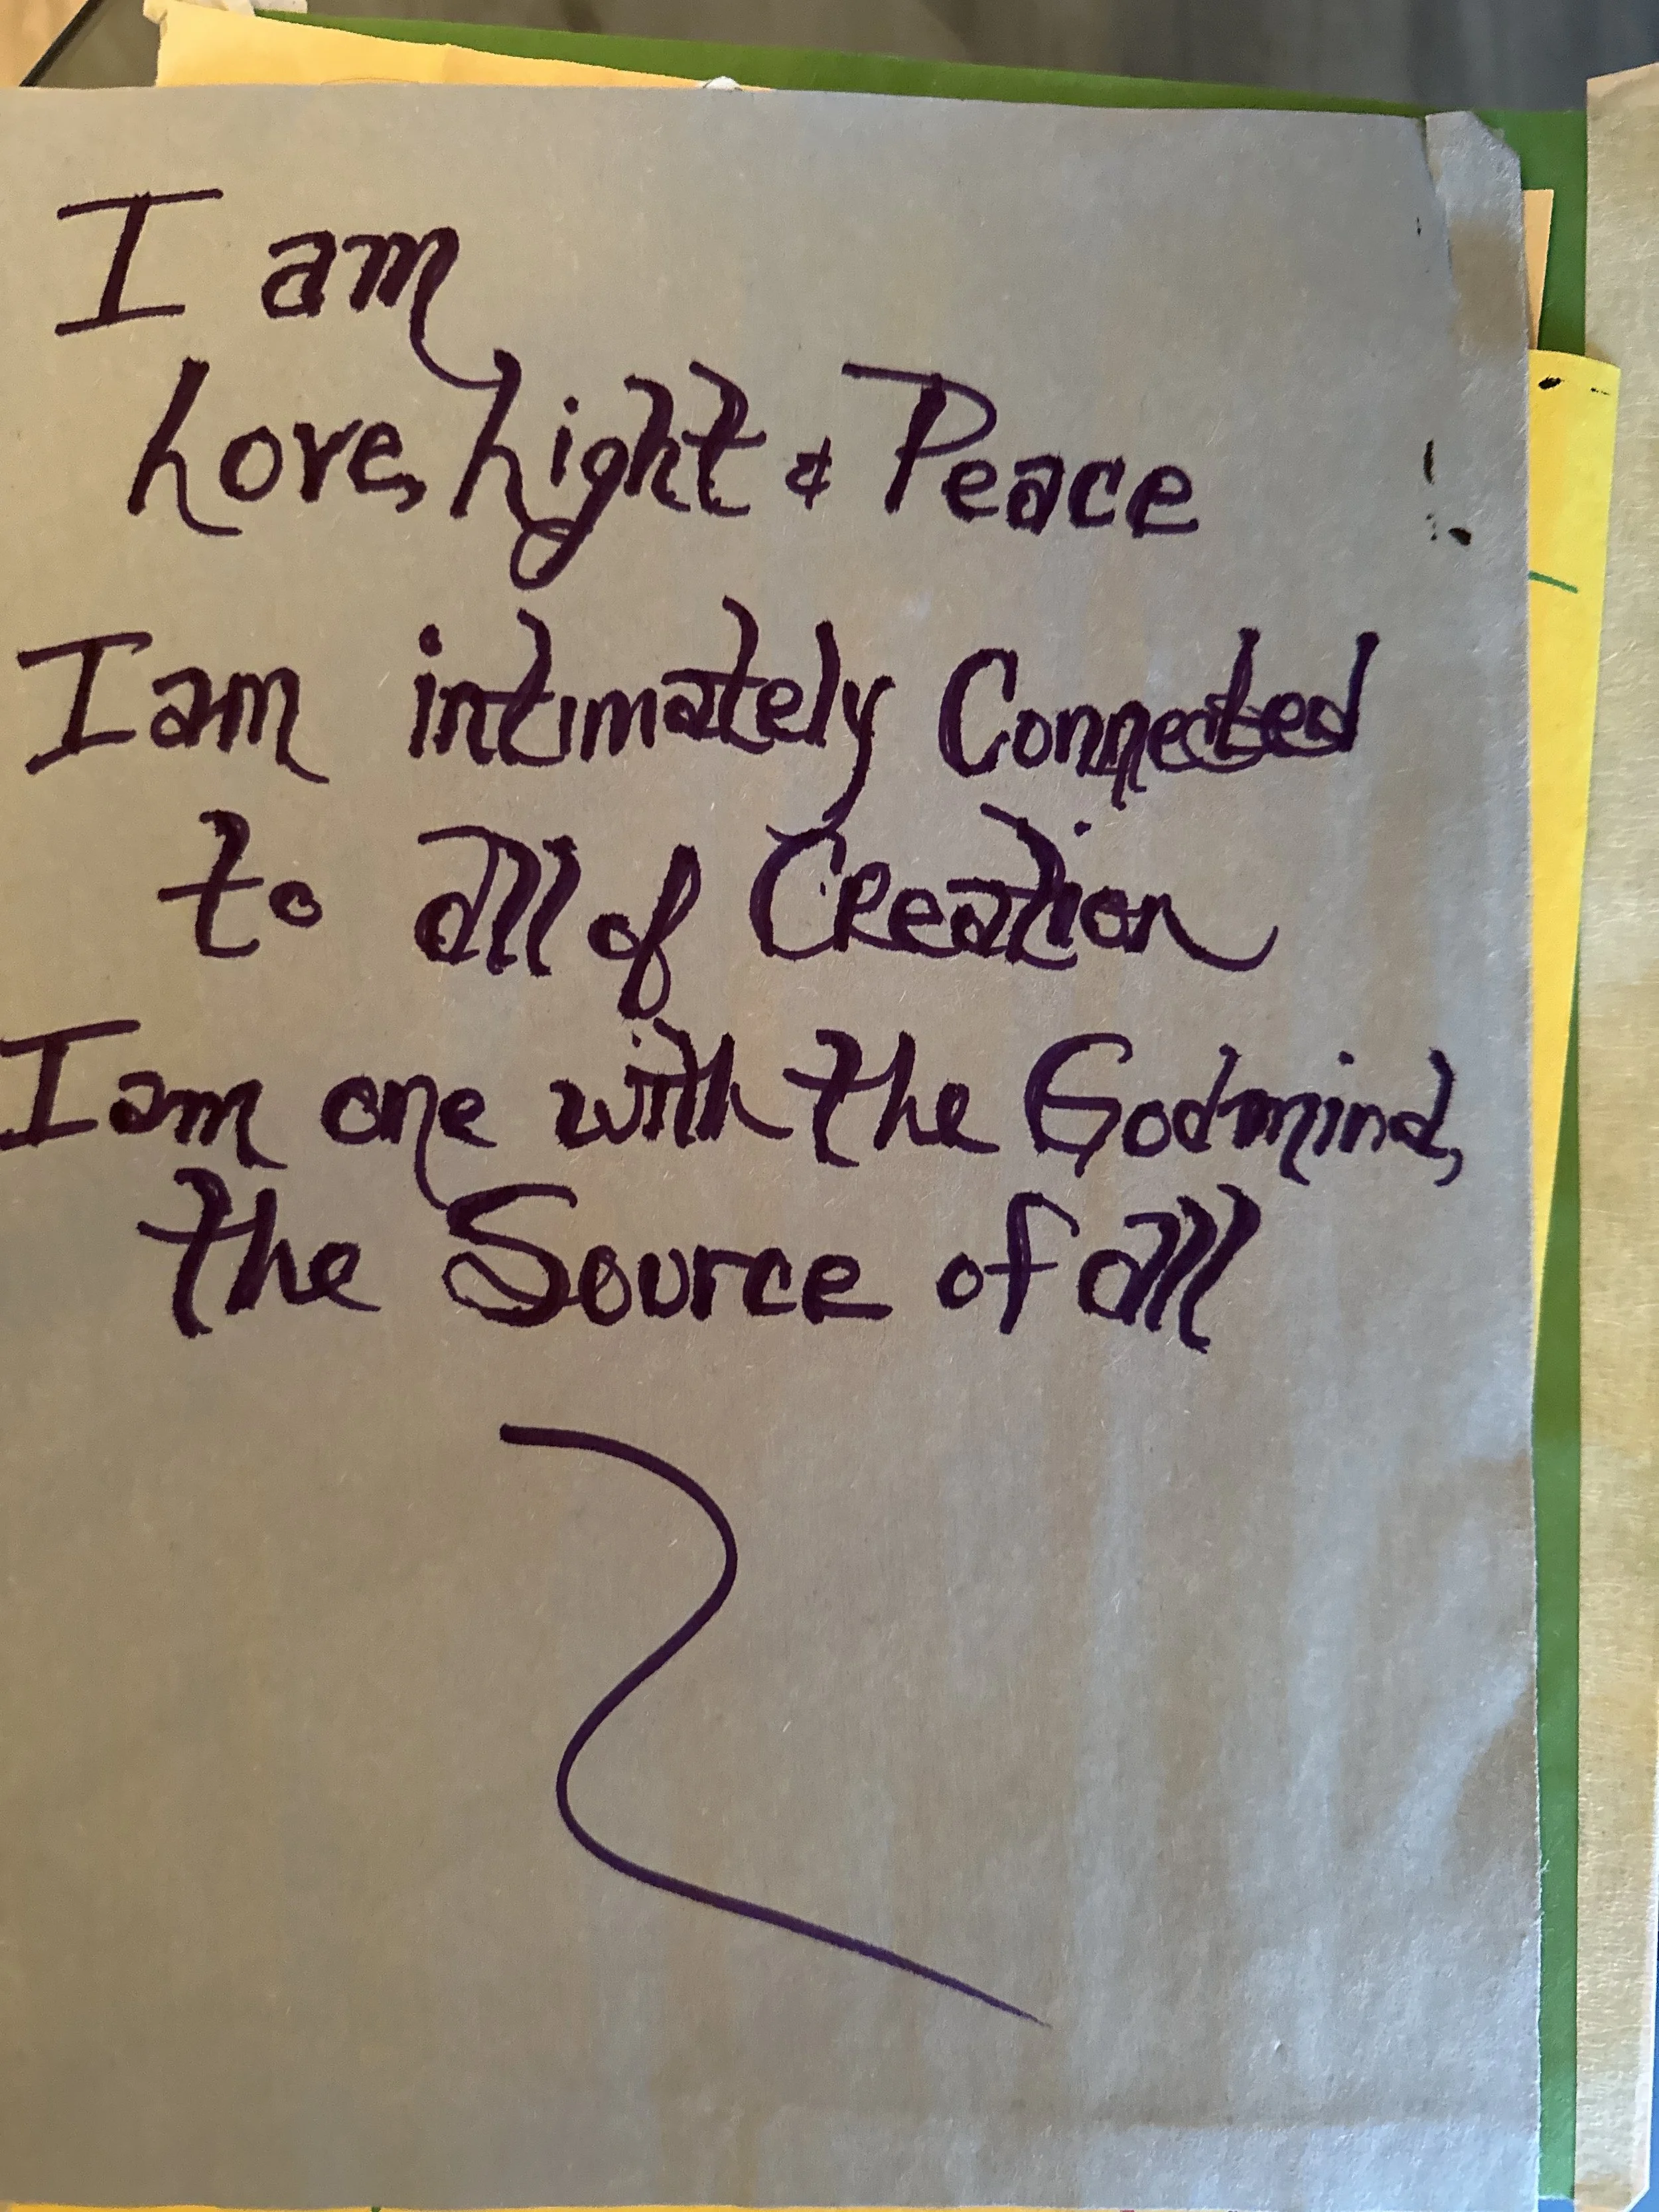 I am
Love, Light & Peace
I am intimately Connected
to all of Creation
I am one with the Godmind,
the Source of all